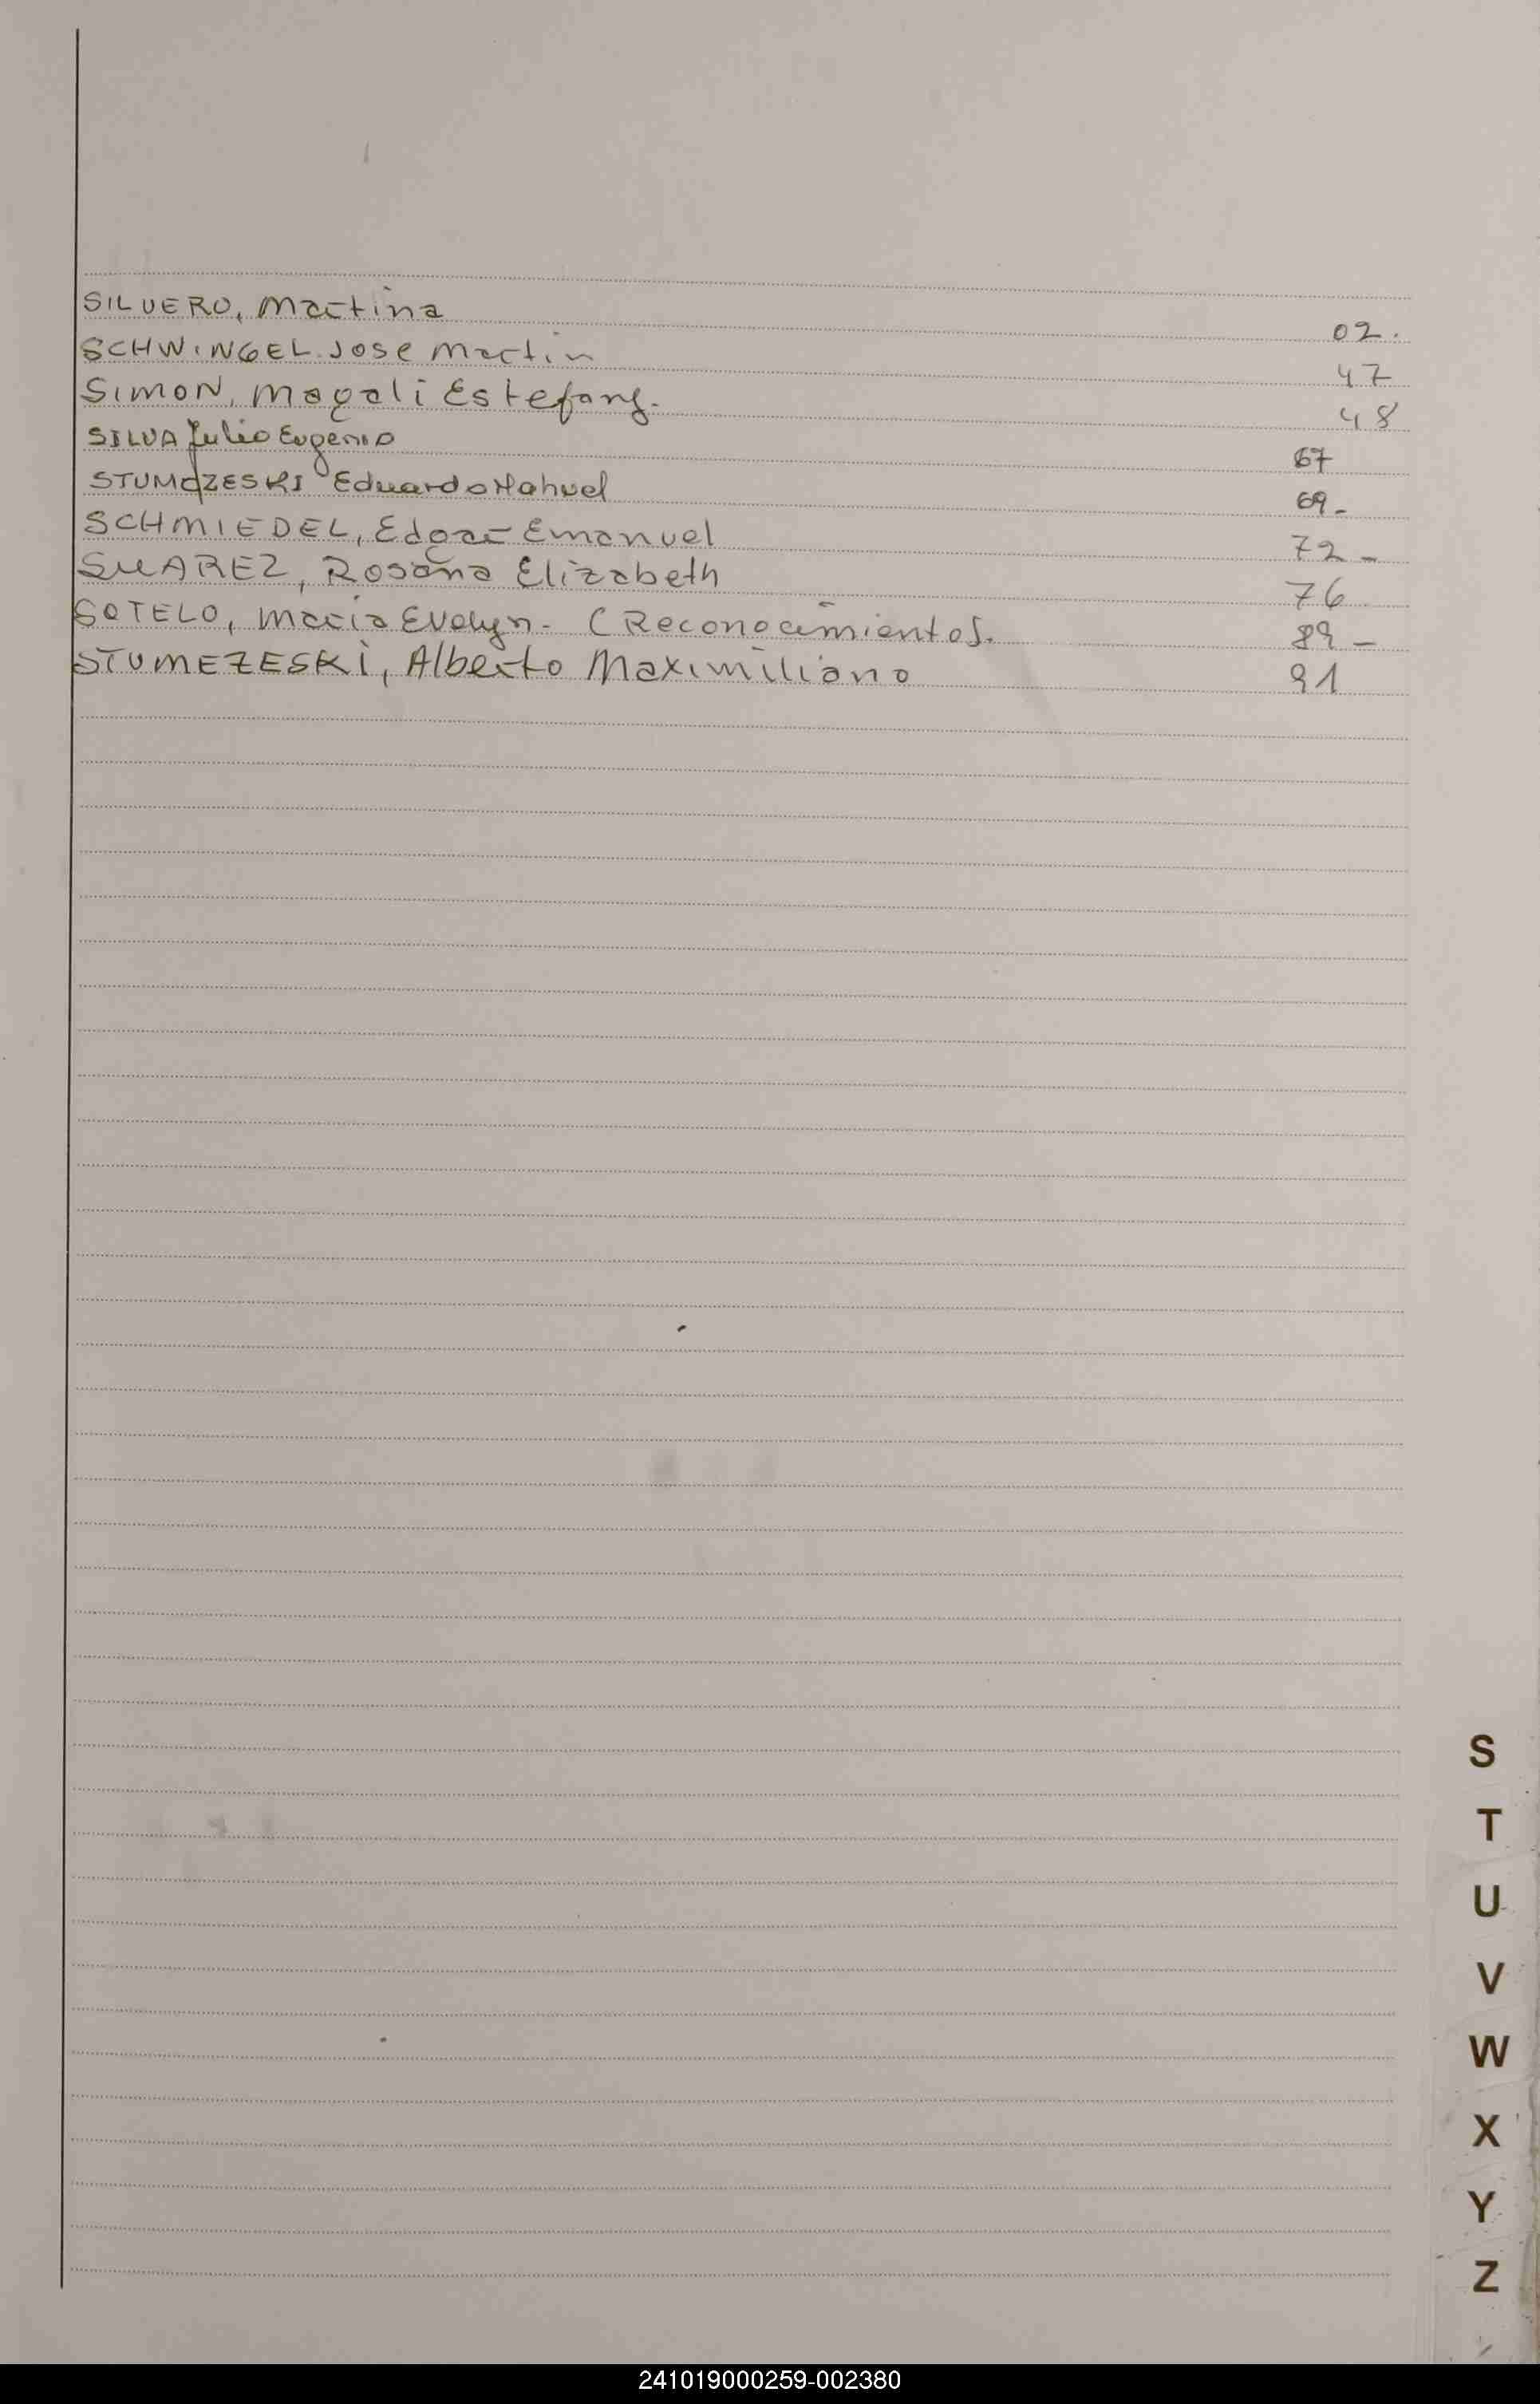 SILVERO, Martina 02.
SCHWINGEL. Jose Martin 47
SIMON, Magali Estefany. 48
SILVA Julio Eugenio 67
STUMCZESKI Eduardo Nahuel 69-
SCHMIEDEL, Edgar Emanuel 72-
SUAREZ, Rosana Elizabeth 76
SOTELO, Maria Evelyn- (Reconocimientos. 89-
STUMEZESKI, Alberto Maximiliano 91
S
T
U
V
W
X
Y
Z
241019000259-002380